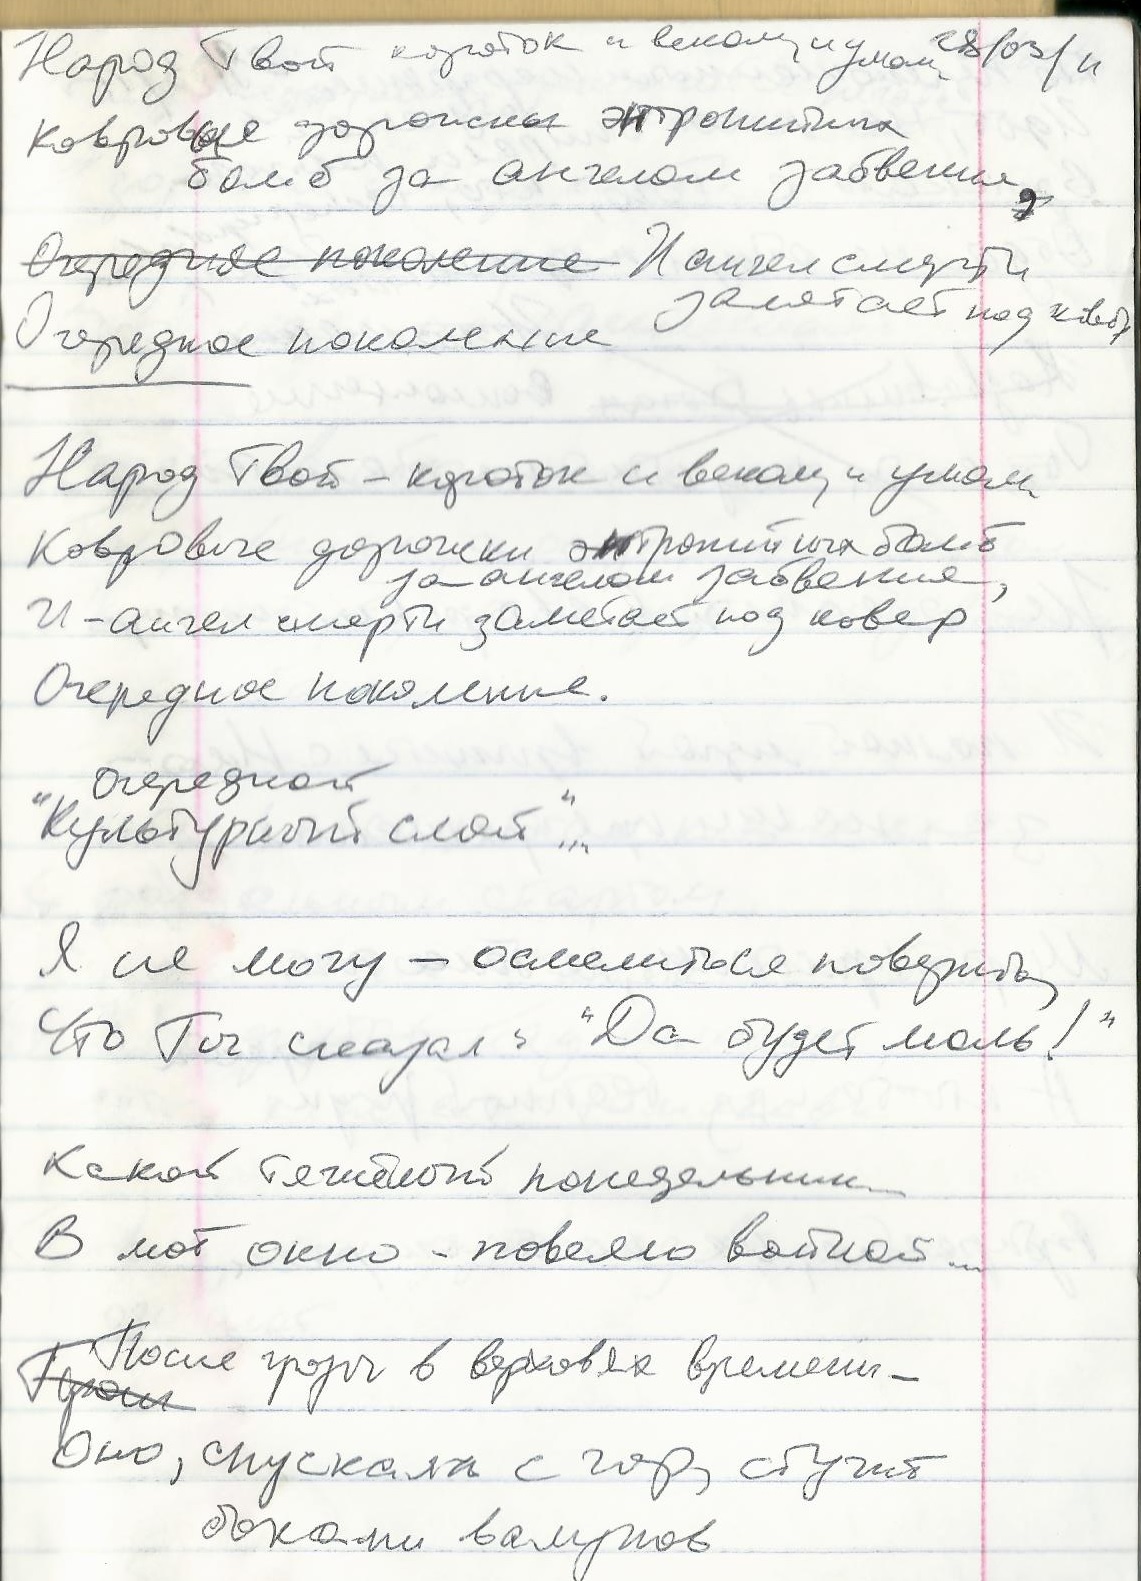 Народ Твой короток и веком, и умом, 28/03/11
Ковровые дорожки энтропийных
бомб за ангелом забвения,
Очередное поколение И ангел смерти
заметает под ковёр
Очередное поколение
Народ Твой – короток и веком, и умом.
Ковровые дорожки энтропийных бомб
за ангелом забвения,
И – ангел смерти заметает под ковер
Очередное поколение.
очередной
"Культурный слой"...
Я не могу – осмелиться поверить,
Что Ты сказал: "Да будет моль!"
Какой тяжёлый понедельник...
В моё окно – повеяло войной...
После грозы в верховьях времени –
Оно, спускаясь с гор, стучит
боками валунов